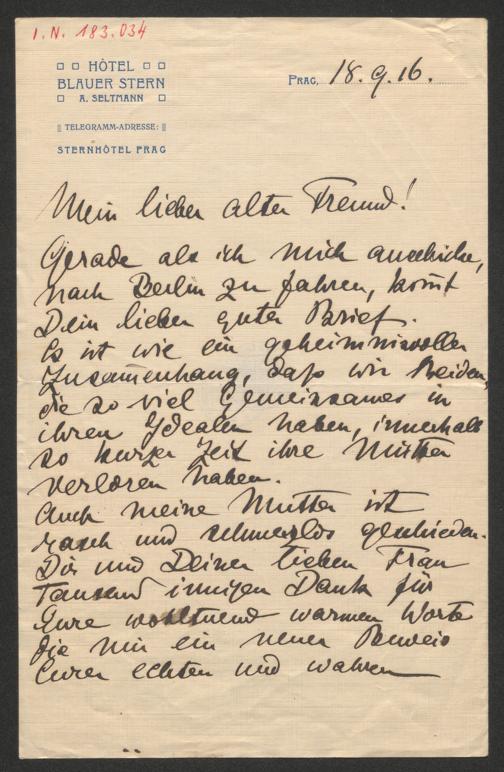 I.N. 183.034
HÔTEL
BLAUER STERN
A. SELTMANN
TELEGRAMM-ADRESSE:
STERNHÔTEL PRAG
PRAG, 18.9.16.
Mein lieber alter Freund!
Gerade als ich mich anschicke,
nach Berlin zu fahren, kom̄t
Dein lieber guter Brief.
Es ist wie ein geheimnisvoller
Zusam̄enhang, daß wir Beiden,
die so viel Gemeinsames in
ihren Idealen haben, innerhalb
so kurzer Zeit ihre Mütter
verloren haben.
Auch meine Mutter ist
rasch und schmerzlos geschieden.
Dir und Deiner lieben Frau
Tausend innigen Dank für
Eure wohltuend warmen Worte
die mir ein neuer Beweis
Eurer echten und wahren